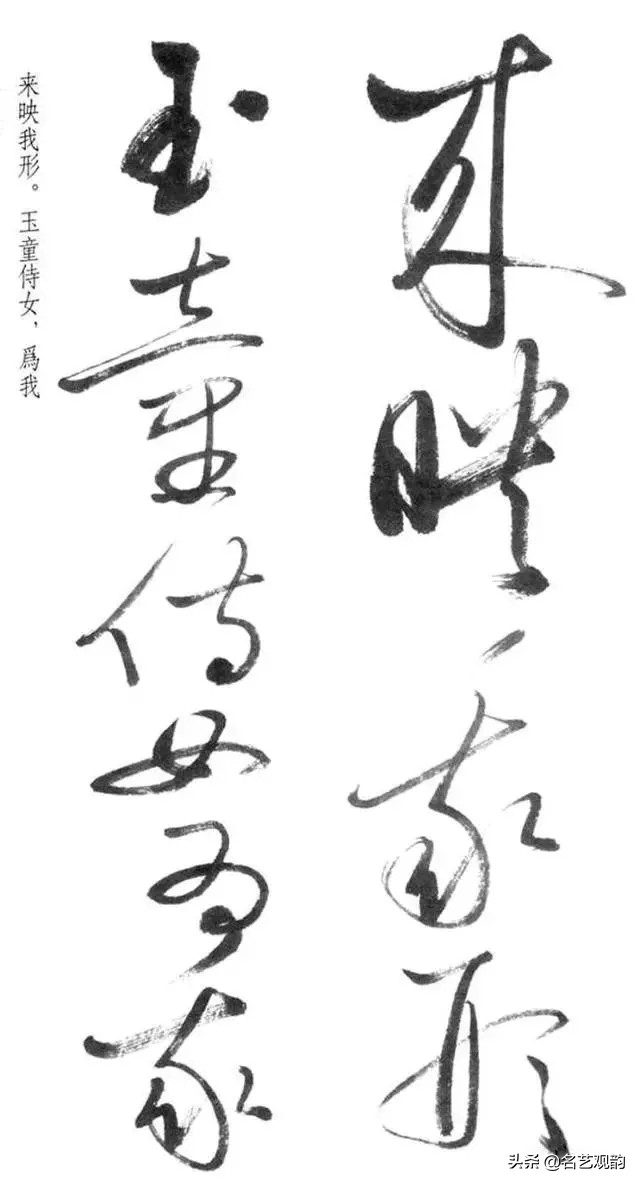 来映我形
玉童侍女为我
来映我形。玉童侍女，爲我
头条 @名艺观韵